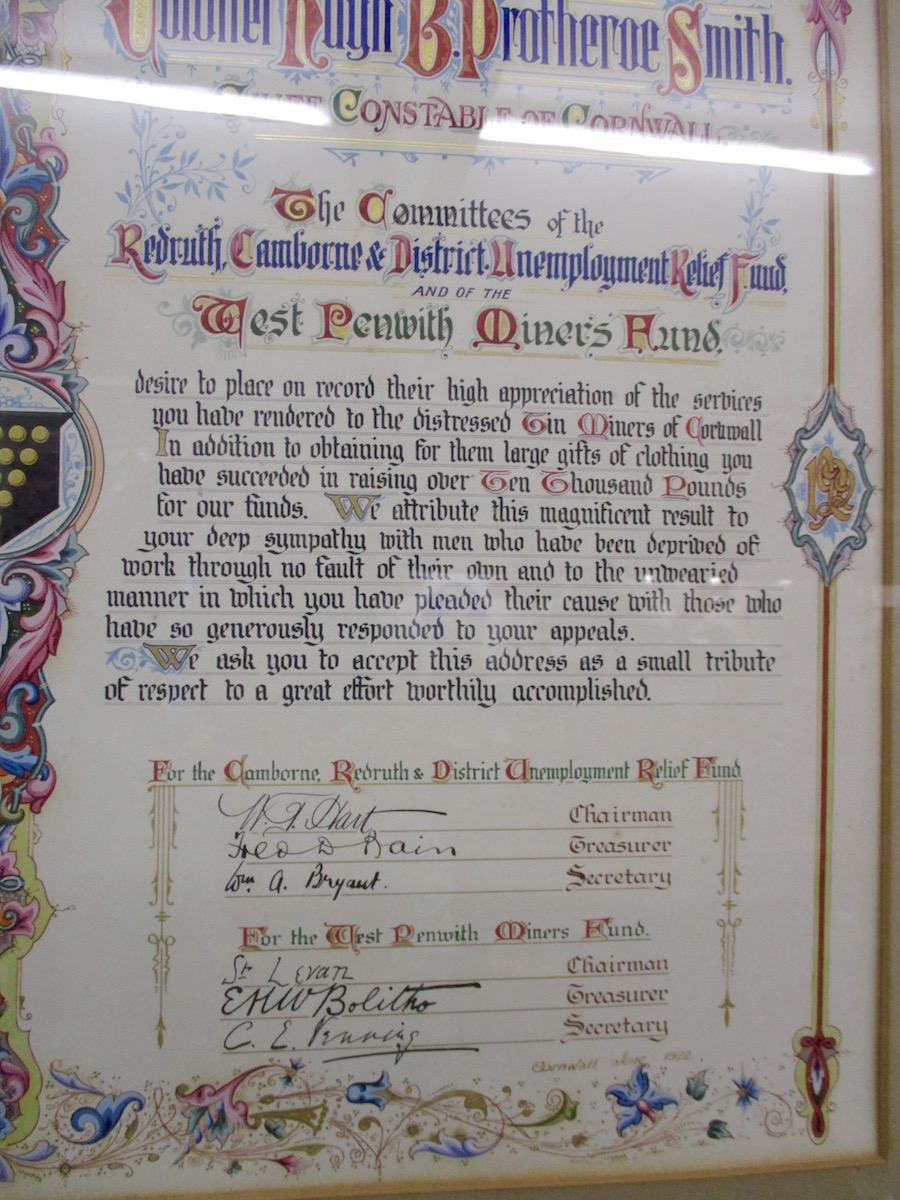 Colonel Hugh B. Protheroe Smith.
Chief Constable of Cornwall
The Committees of the
Redruth, Camborne & District Unemployment Relief Fund,
AND OF THE
West Penwith Miners Fund,
desire to place on record their high appreciation of the services
you have rendered to the distressed Tin Miners of Cornwall
In addition to obtaining for them large gifts of clothing you
have succeeded in raising over Ten Thousand Pounds
for our funds. We attribute this magnificent result to
your deep sympathy with men who have been deprived of
work through no fault of their own and to the unwearied
manner in which you have pleaded their cause with those who
have so generously responded to your appeals.
We ask you to accept this address as a small tribute
of respect to a great effort worthily accomplished.
For the Camborne, Redruth & District Unemployment Relief Fund
Hart Chairman
Fred D Bain Treasurer
Wm A. Bryant. Secretary
For the West Penwith Miners Fund.
St Levan Chairman
EHW Bolitho Treasurer
C. E. Venning Secretary
Cornwall 1922